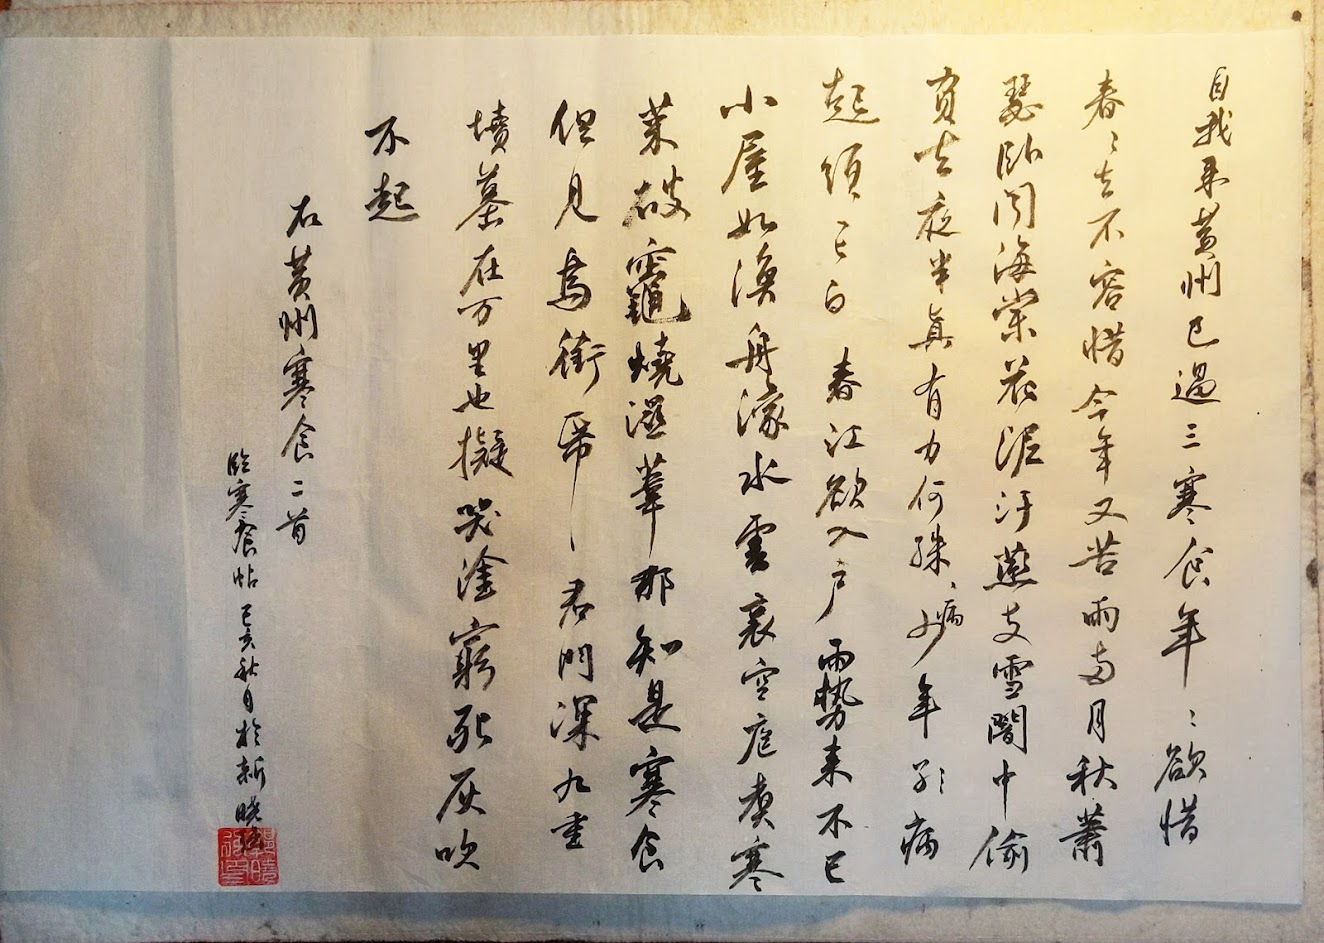 自我来黄州已過三寒食年〻欲惜
春〻去不容惜今年又苦雨兩月秋蕭
瑟卧聞海棠花泥汙燕支雪闇中偷
負去夜半真有力何殊〻少年子病
病
起須已白春江欲入户雨勢来不已
小屋如漁舟濛水雲裏空庖煮寒
菜破竈燒濕葦那知是寒食
但見烏銜帋君門深九重
墳墓在万里也擬哭塗窮死灰吹
不起
右黄州寒食二首
臨寒食帖己亥秋月於新